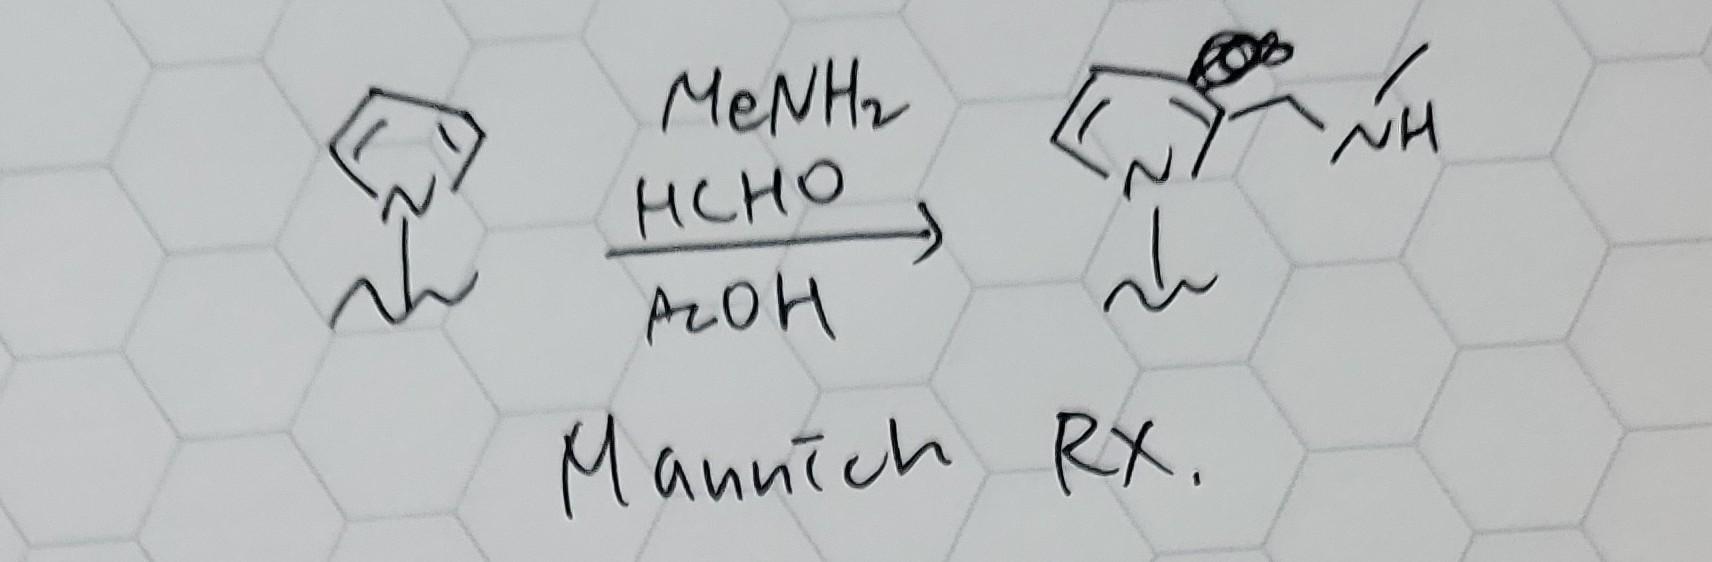 MeNH₂
HCHO
AcOH
N
N
NH
Mannich RX.